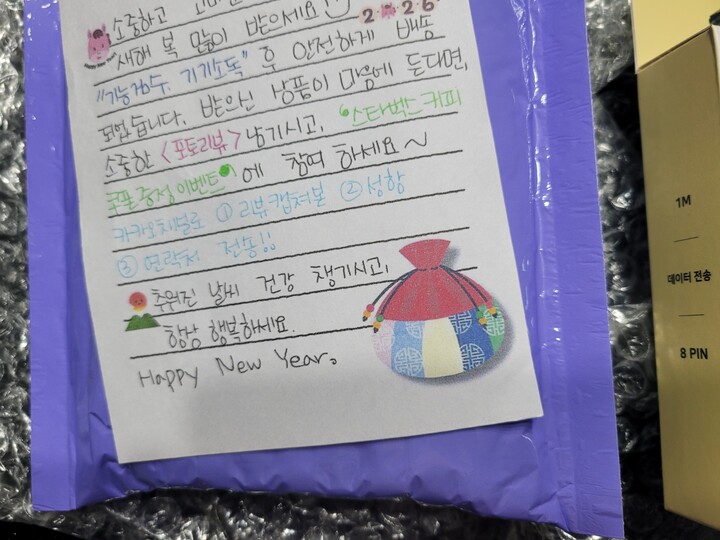 소중하고
새해 복 많이 받으세요! 2026
"기능검수, 기기소독" 후 안전하게 배송
되었습니다. 받으신 상품이 마음에 든다면,
소중한 <포토리뷰> 남기시고, "스타벅스 커피
쿠폰 증정 이벤트" 에 참여 하세요~
카카오채널로 ① 리뷰캡쳐본 ② 성함
③ 연락처 전송!!
추워진 날씨 건강 챙기시고,
항상 행복하세요.
Happy New Year.
1M
데이터 전송
8 PIN